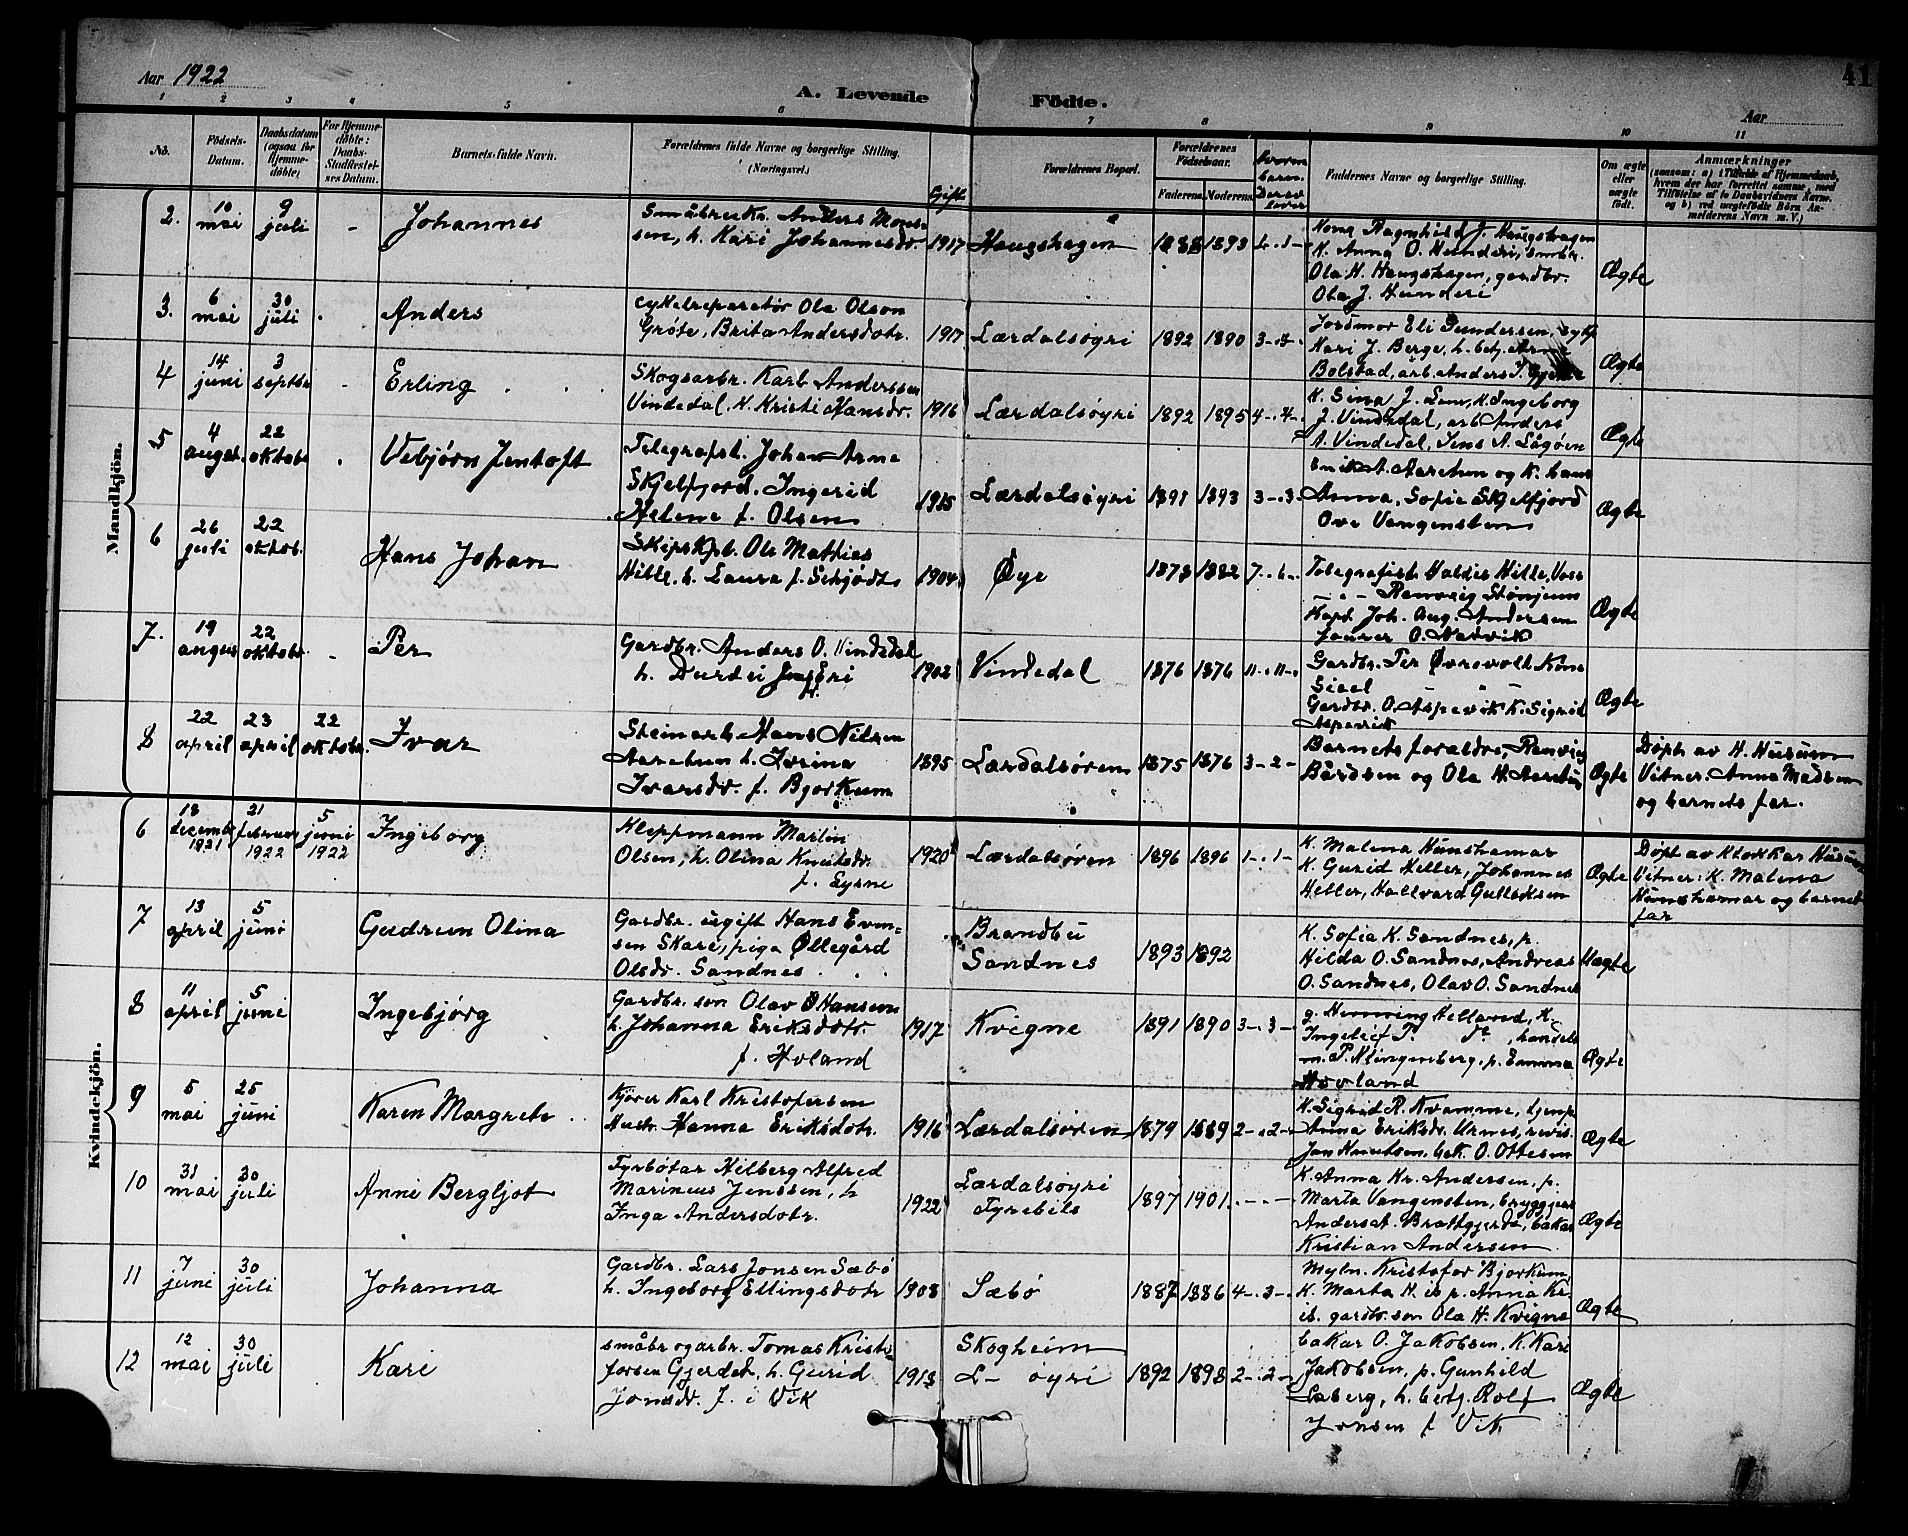 Aar 1922
A. Levende Födte.
41
Aar
1 2 3 4 5 6 7 8 9 10 11
No. Födsels-Datum. Daabsdatum (ogsaa for Hjemmedöbte) For Hjemmedöbte: Daabs-Stadfæstelses Datum. Barnets fulde Navn. Forældrenes fulde Navne og borgerlige Stilling. (Næringsvei.) Gift Forældrenes Bopæl. Forældrenes Födselsaar. Faderens. Moderens. Faddernes Navne og borgerlige Stilling. Om ægte eller uægte födt. Anmærkninger
Mandkjön.
2. 10 mai 9 juli - Johannes
Småbrukr. Anders Mons-
sen, h. Kari Johannesdr. 1917 Haugshagen 1888 1893
Kona Ragnhild J. Haugshagen
K. Anna O. Hunderi, smbr.
Ola H. Haugshagen, gardbr.
Ola J. Hunderi
Ægte
3. 6 mai 30 juli Anders
Cykelreparatør Ola Olson
Grøte, Brita Andersdotr. 1917 Lærdalsøyri 1892 1890
Jorsmor Eli Gundersen,
Kari J. Berge, h. betj. Arne
Bolstad, arb Anders J.
Ægte
4 14 juni 3 septbr - Erling
Skogsarbr. Karl Anderssen
Vindedal, H. Kristi Hansdr. 1916 Lærdalsøyri 1892 1895
K. Sina J. Lem, K. Ingeborg
J. Vindedal, arb Anders
A. Vindedal, Jens A. Lägøen
Ægte
5 4 august. 22 oktobr Vebjørn Jentoft
Telegrafst. Johan Arne
Skjelfjord, Ingerid
Helene f. Olsen 1915 Lærdalsøyri 1891 1893 3-.3-
Enik. A. Aaretun og K. hans
Anna, Sofie Skjelfjord
Ove Vangensten
Ægte
6 26 juli 22 oktob. Hans Johan
Skipskpt. Ole Mathias
Hille, h. Laura f. Schjødt 1904 Øye 1873 1882 7-.6-
Telegrafist Haldis Hille, Voss
- " - Renveig Stønjum
Kapt. Joh. Aug. Andersen
O. Nedvik
Ægte
7. 19 august 22 oktobr. - Per
Gardbr. Anders O. Vindedal
h. Durdei 1902 Vindedal 1876 1876 11-.11-
Gardbr. Per Øvrevoll Kona
Sissel
Gardbr. O. Aspevik K. Sigrid
Aspevik
Ægte
8 22 april 23 april 22 oktobr. Ivar
Steinarb. Hans Nilsen
Aaretun h. Ivrina
Ivarsdr. f. Bjørkum 1895 Lærdalsøren 1875 1876 3-2-
Barnets foraldre, Renveig
Bårdsen og Ola H. Aaretun
Ægte
Døpt av H. Husum
Vitner: Anna Madsen
og barnets far.
Kvindekjön.
6 18 dezembr 1921 21 februar 1922 5 juni 1922 Ingeborg
Kleppmann Martin
Olsen, h. Olina Knutsdr.
f. Lysne 1920 Lærdalsøren 1896 1896 1-.1-
K. Malena Hunshamar
K. Gurid Heller, Johannes
Heller, Hallvard Gulleksen
Ægte
Døpt av Klokkar Husum
Vitner: K. Malena
Hunshamar og barnets
far
7 13 april 5 juni Gudrun Olina
Gardbr. ugift Hans Even-
sen Skari, piga Øllegård
Olsdr. Sandnes Brandbu
Sandnes 1893 1892
K. Sofia K. Sandnes, p.
Hilda O. Sandnes, Andreas
O. Sandnes, Olav O. Sandnes
Uægte
8 11 april 5 juni Ingebjørg
Gardbr. son Olav O Hansem
h. Johanna Eriksdotr.
f. Hovland 1917 Kvigne 1891 1890 3-.3-
g. Henning Helland, K.
Ingelief T. do, handels
m. P. Klingenberg, p. Emma
Hovland
Ægte
9 5 mai 25 juni Karen Margrete
Kjører Karl Kristofersen
Hustr. Hanna Eriksdotr. 1916 Lærdalsøren 1879 1889 2-.2-
K. Sigrid R. Kvamme, tjenp.
Anna Eriksdr. Urnes, revis.
Jan Knutsen, bak. O. Ottesen
Ægte
10 31 mai 30 juli Anni Bergljot
Fyrbøtar Hilberg Alfred
Marineus Jenssen, h
Inga Andersdotr. 1922 Lærdalsøyri
Fyrebils 1897 1901 -.-
K. Anna Kr. Andersen, p.
Marta Vangensten, bryggjar
Anders A. Brattgjerd, bakar
Kristian Andersen
Ægte
11 7 juni 30 juli Johanna
Gardbr. Lars Jonsen Sæbö
h. Ingeborg Ellingsdotr 1908 Sæbö 1887 1886 4-.3-
Myln. Kristofer Bjorkum,
K. Marta H. ib p. Anna Kr.
ib. gardbr. son Ola H. Kvigne
Ægte
12 12 mai 30 juli Kari
småbr og arbr. Tomas Kristo-
forsen Gjerdet, h. Gurid
Jonsdr. f. i Vik 1918 Skogheim
L- øyri 1892 1898 2-.2-
bakar O. Jakobsen, K. Kari
Jakobsen, p. Gunhild
Laberg, h. betj. Rolf
Jonsen f Vik
Ægte